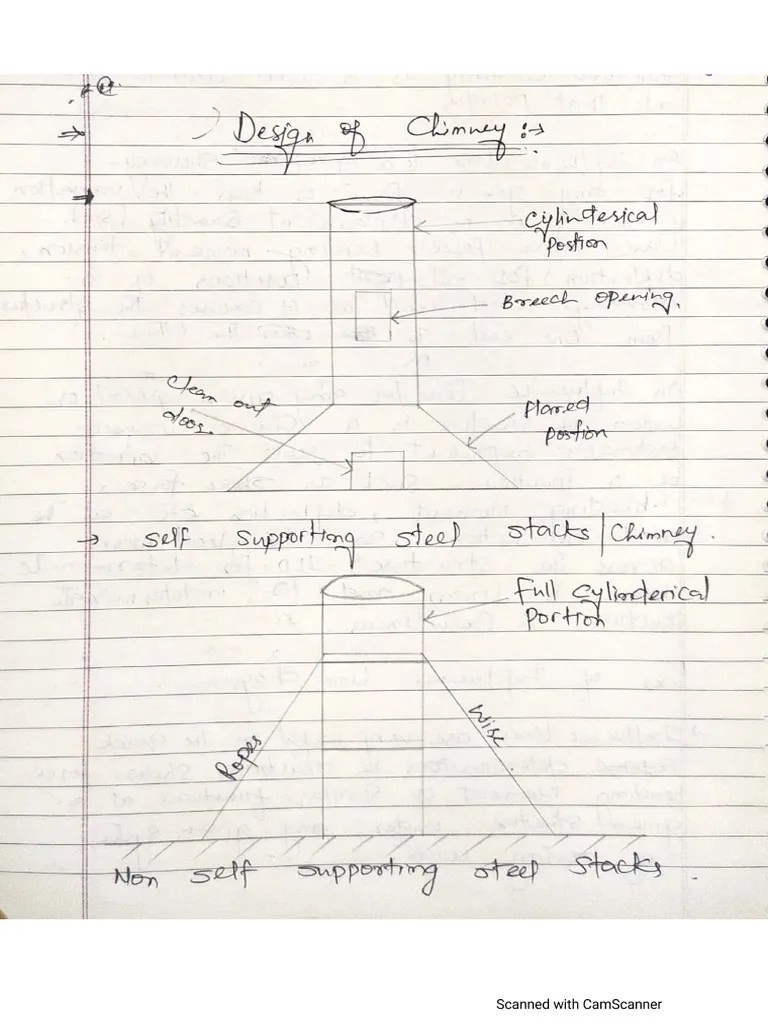 Design of Chimney :→
Cylinderical
Portion
Breech opening.
Clean out
door.
Flared
portion
→ Self supporting steel stacks | Chimney.
Full Cylinderical
Portion
Ropes
Wire
Non self supporting steel stacks.
Scanned with CamScanner